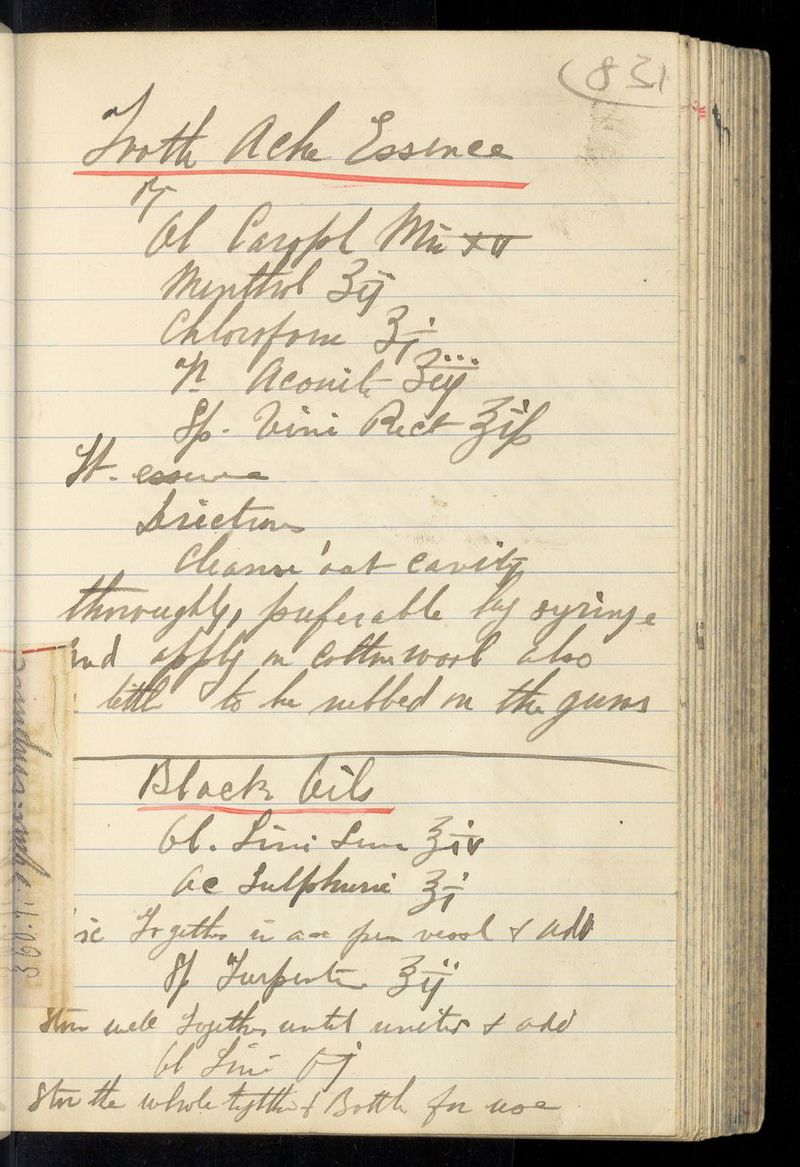 (831
Tooth Ache Essence
Ol Caryoph
Menthol ʒij
Chloroform ʒj
Tr Aconite ʒiij
Sp. Vini Rect
Ft. essence
Directions
Cleanse out cavity
thoroughly, preferable by syringe
and apply on cotton wool also
little to be rubbed on the gums
Black Oils
Ol. Lini Sem ʒiv
Ac Sulphuric ʒj
Together in an open vessel & add
Sp Turpentine ʒij
Stir well together until unites & add
Ol Lini Oj
Stir the whole together & Bottle for use